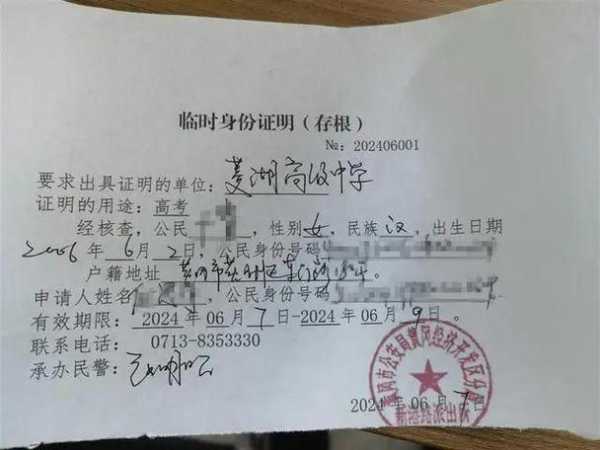 临时身份证明（存根）
№：202406001
要求出具证明的单位：菱湖高级中学
证明的用途：高考
经核查，公民，性别女，民族汉，出生日期
2006年6月2日，公民身份号码
户籍地址 黄冈市黄州区
申请人姓名，公民身份号码
有效期限：2024年06月7日-2024年06月9日。
联系电话： 0713-8353330
承办民警：
黄冈市公安局黄冈经济开发区分局
2024 06月7
派出所